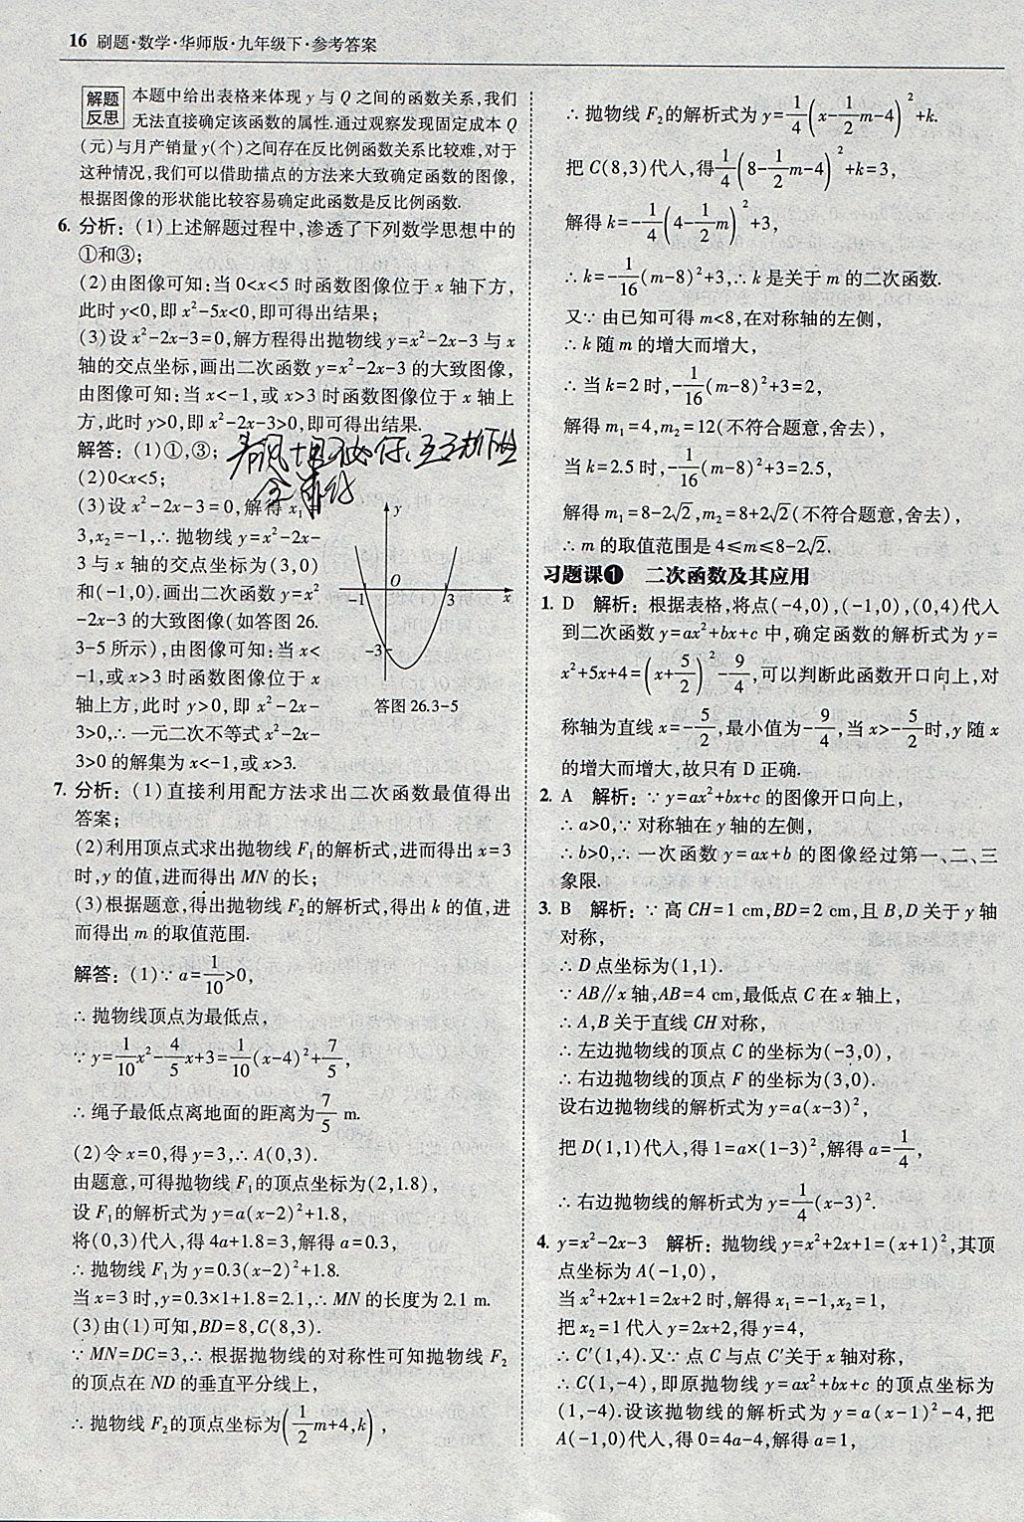 16 刷题·数学·华师版·九年级下·参考答案
解题 本题中给出表格来体现 y 与 Q 之间的函数关系,我们
反思 无法直接确定该函数的属性.通过观察发现固定成本 Q
(元)与月产销量 y(个)之间存在反比例函数关系比较难,对于
这种情况,我们可以借助描点的方法来大致确定函数的图像,
根据图像的形状能比较容易确定此函数是反比例函数.
6. 分析:(1)上述解题过程中,渗透了下列数学思想中的
①和③;
(2)由图像可知:当 0<x<5 时函数图像位于 x 轴下方,
此时 y<0,即 x²-5x<0,即可得出结果;
(3)设 x²-2x-3=0,解方程得出抛物线 y=x²-2x-3 与 x
轴的交点坐标,画出二次函数 y=x²-2x-3 的大致图像,
由图像可知:当 x<-1,或 x>3 时函数图像位于 x 轴上
方,此时 y>0,即 x²-2x-3>0,即可得出结果.
解答:(1)①,③;
(2)0<x<5;
(3)设 x²-2x-3=0,解得 x₁
3,x₂=-1,∴ 抛物线 y=x²-2x-
3 与 x 轴的交点坐标为(3,0)
和(-1,0).画出二次函数 y=x²
-2x-3 的大致图像(如答图 26.
3-5所示),由图像可知:当 x<
-1,或 x>3 时函数图像位于 x
轴上方,此时 y>0,即 x²-2x-
3>0,∴ 一元二次不等式 x²-2x-
3>0 的解集为 x<-1,或 x>3.
y
O
-1 3 x
-3
答图 26.3-5
7. 分析:(1)直接利用配方法求出二次函数最值得出
答案;
(2)利用顶点式求出抛物线 F₁的解析式,进而得出 x=3
时,y 的值,进而得出 MN 的长;
(3)根据题意,得出抛物线 F₂的解析式,得出 k 的值,进
而得出 m 的取值范围.
解答:(1)∵ a=1/10>0,
∴ 抛物线顶点为最低点,
∵ y=1/10x²-4/5x+3=1/10(x-4)²+7/5,
∴ 绳子最低点离地面的距离为7/5 m.
(2)令 x=0,得 y=3,∴ A(0,3).
由题意,可得抛物线 F₁的顶点坐标为(2,1.8),
设 F₁的解析式为 y=a(x-2)²+1.8,
将(0,3)代入,得 4a+1.8=3,解得 a=0.3,
∴ 抛物线 F₁为 y=0.3(x-2)²+1.8.
当 x=3 时,y=0.3×1+1.8=2.1,∴ MN 的长度为 2.1 m.
(3)由(1)可知,BD=8,C(8,3).
∵ MN=DC=3,∴ 根据抛物线的对称性可知抛物线 F₂
的顶点在 ND 的垂直平分线上,
∴ 抛物线 F₂的顶点坐标为(1/2m+4,k),
∴ 抛物线 F₂的解析式为 y=1/4(x-1/2m-4)²+k.
把 C(8,3)代入,得1/4(8-1/2m-4)²+k=3,
解得 k=-1/4(4-1/2m)²+3,
∴ k=-1/16(m-8)²+3,∴ k 是关于 m 的二次函数.
又∵ 由已知可得 m<8,在对称轴的左侧,
∴ k 随 m 的增大而增大,
∴ 当 k=2 时,-1/16(m-8)²+3=2,
解得 m₁=4,m₂=12(不符合题意,舍去),
当 k=2.5 时,-1/16(m-8)²+3=2.5,
解得 m₁=8-2√2,m₂=8+2√2(不符合题意,舍去),
∴ m 的取值范围是 4≤m≤8-2√2.
习题课❶ 二次函数及其应用
1. D 解析:根据表格,将点(-4,0),(-1,0),(0,4)代入
到二次函数 y=ax²+bx+c 中,确定函数的解析式为 y=
x²+5x+4=(x+5/2)²-9/4,可以判断此函数开口向上,对
称轴为直线 x=-5/2,最小值为-9/4,当 x>-5/2时,y 随 x
的增大而增大,故只有 D 正确.
2. A 解析:∵ y=ax²+bx+c 的图像开口向上,
∴ a>0,∵ 对称轴在 y 轴的左侧,
∴ b>0,∴ 一次函数 y=ax+b 的图像经过第一、二、三
象限.
3. B 解析:∵ 高 CH=1 cm,BD=2 cm,且 B,D 关于 y 轴
对称,
∴ D 点坐标为(1,1).
∵ AB∥x 轴,AB=4 cm,最低点 C 在 x 轴上,
∴ A,B 关于直线 CH 对称,
∴ 左边抛物线的顶点 C 的坐标为(-3,0),
∴ 右边抛物线的顶点 F 的坐标为(3,0).
设右边抛物线的解析式为 y=a(x-3)²,
把 D(1,1)代入,得 1=a×(1-3)²,解得 a=1/4,
∴ 右边抛物线的解析式为 y=1/4(x-3)².
4. y=x²-2x-3 解析:抛物线 y=x²+2x+1=(x+1)²,其顶
点坐标为 A(-1,0),
当 x²+2x+1=2x+2 时,解得 x₁=-1,x₂=1,
把 x₂=1 代入 y=2x+2,得 y=4,
∴ C′(1,4).又∵ 点 C 与点 C′关于 x 轴对称,
∴ C(1,-4),即原抛物线 y=ax²+bx+c 的顶点坐标为
(1,-4).设该抛物线的解析式为 y=a(x-1)²-4,把
A(-1,0)代入,得 0=4a-4,解得 a=1,